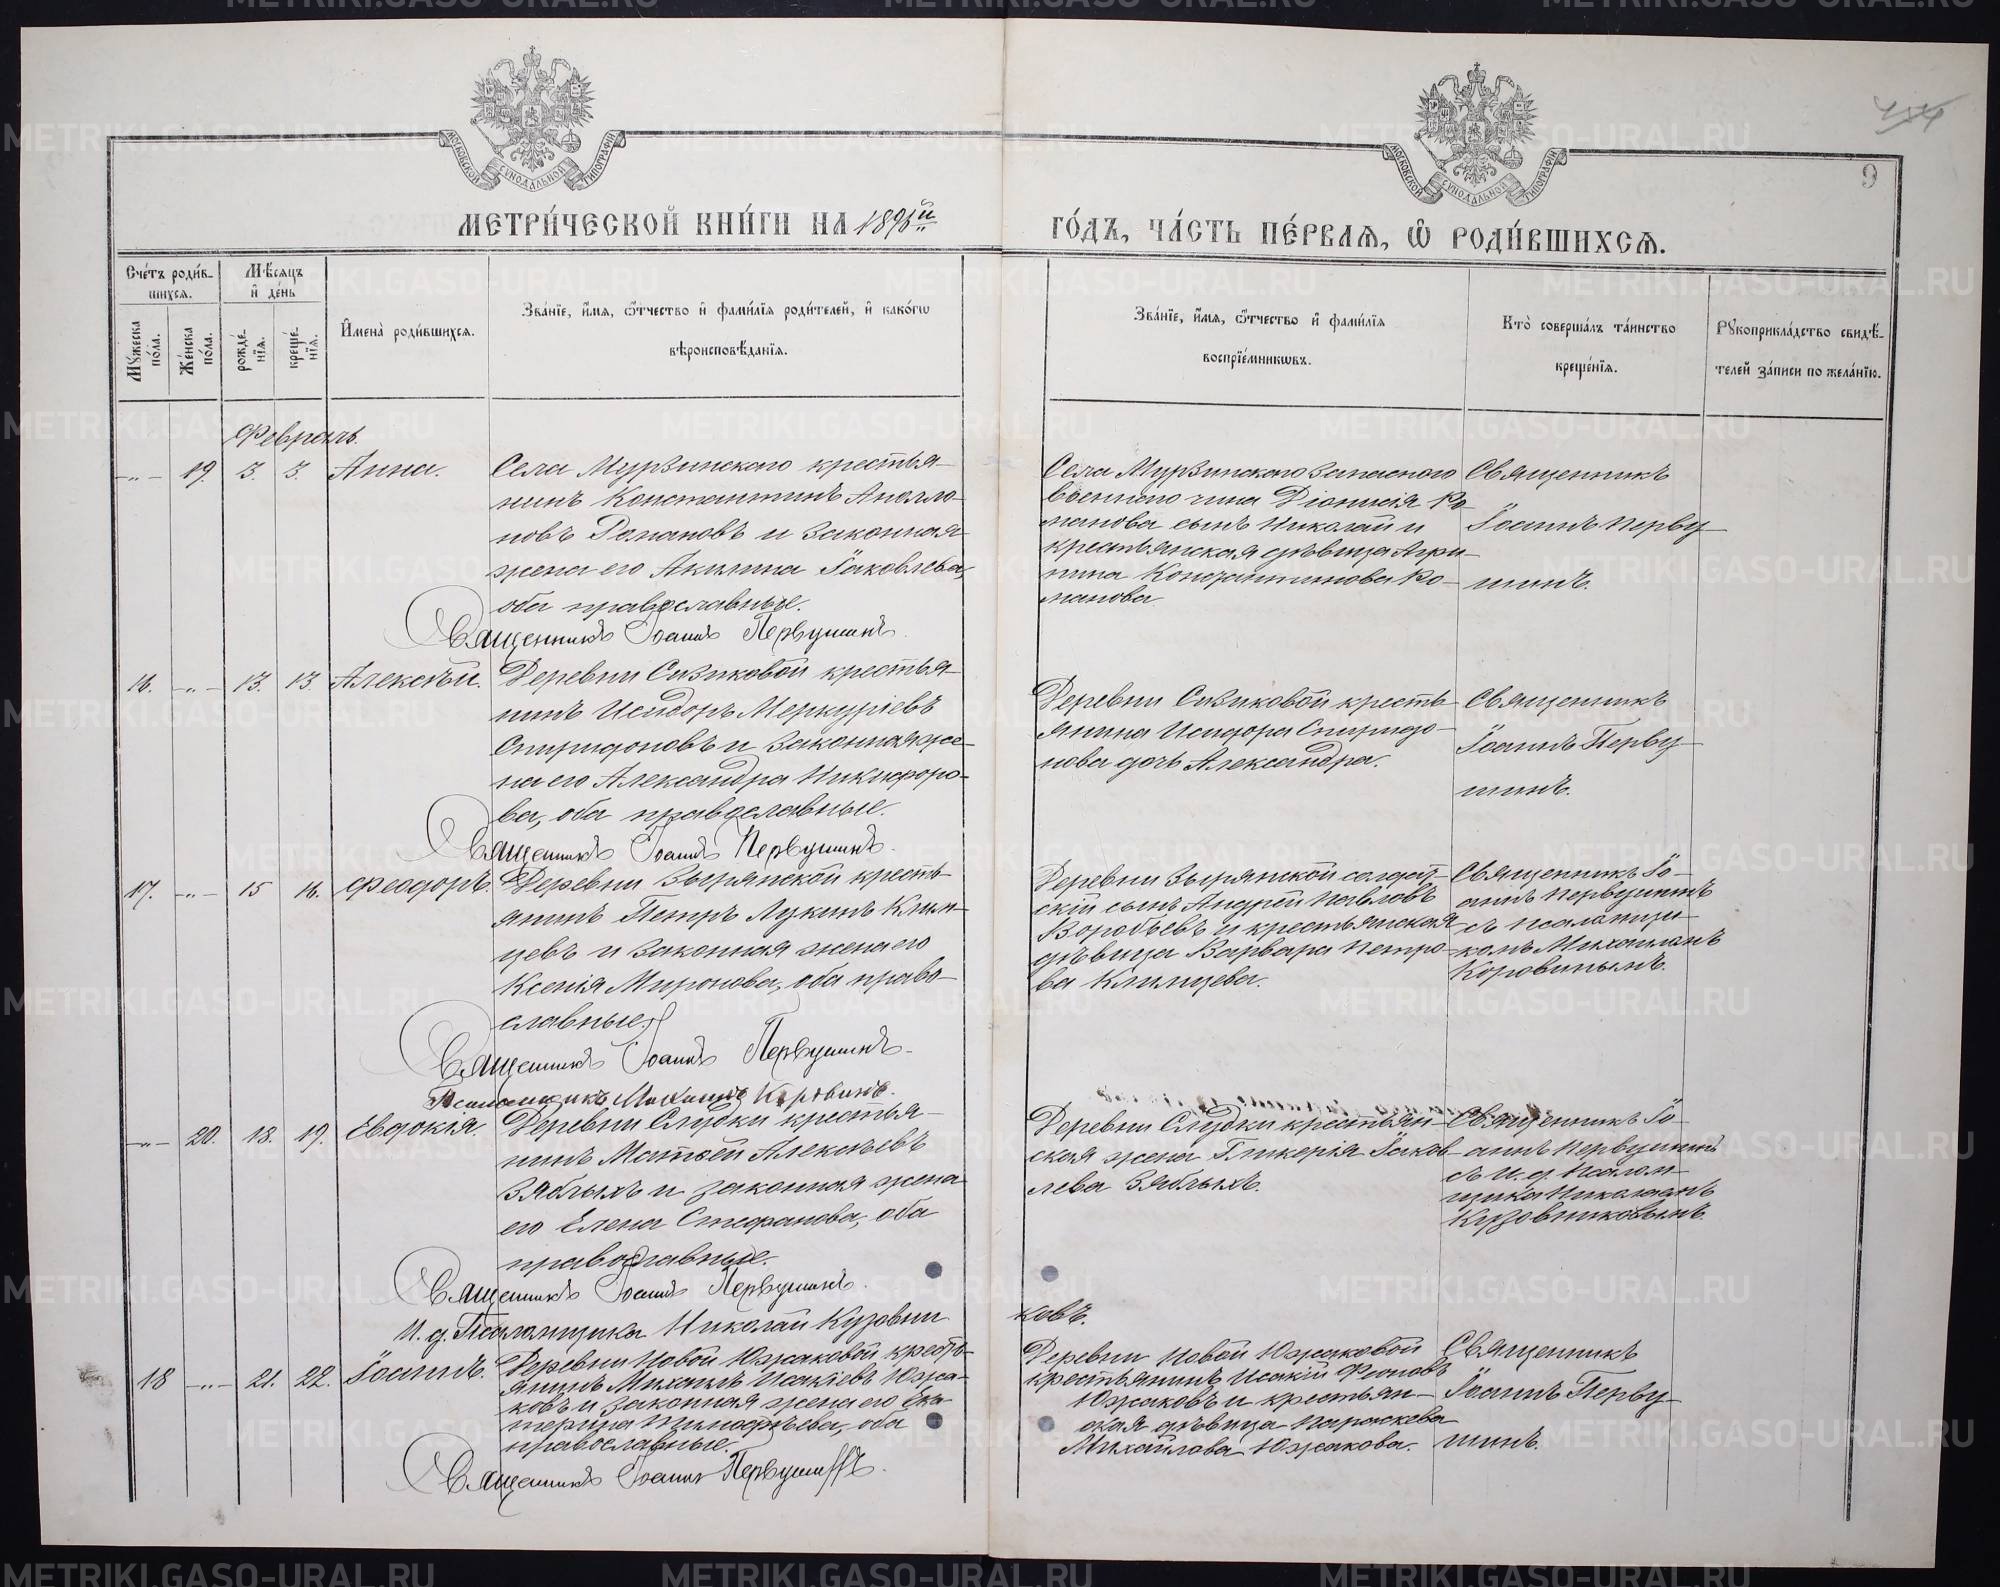 МОСКОВСКОЙ СУНОДАЛЬНОЙ ТИПОГРАФІИ
МОСКОВСКОЙ СУНОДАЛЬНОЙ ТИПОГРАФІИ
9
МЕТРИ́ЧЕСКОЙ КНИ́ГИ НА 1896й ГО́ДЪ, ЧА́СТЬ ПЕ́РВАЯ, Ѽ РОДИ́ВШИХСЯ.
Сче́тъ роди́в-
шихся.
Мѣ́сяцъ
и де́нь
Мꙋ́жеска по́ла.
Же́нска по́ла.
рожде́нїя.
креще́нїя.
Имена̀ роди́вшихся.
Зва́нїе, и́мя, ѻ҆́тчество и҆ фами́лїя роди́телей, и҆ како́гѡ
вѣроисповѣ́данїя.
Зва́нїе, и́мя, ѻ҆́тчество и҆ фами́лїя
воспрїе́мникѡвъ.
Кто̀ соверша́лъ та́инство
креще́нїя.
Рꙋкоприкла́дство свидѣ́-
телей за́писи по жела́нїю.
Февраль.
-„- 19. 3. 3. Анна.
Села Мурзинского крестья-
нинъ Константинъ Аполло-
новъ Романовъ и законная
жена его Акилина Іаковлева,
оба православные.
Священникъ Іоаннъ Первушинъ.
Села Мурзинского запасного
военного чина Діонисія Ро-
манова сынъ Николай и
крестьянская дѣвица Агри-
пина Константинова Ро-
манова
Священникъ
Іоаннъ Перву-
шинъ.
16. -„- 13. 13. Алексѣй.
Деревни Сизиковой крестья-
нинъ Исидоръ Меркуріевъ
Спиридоновъ и законная же-
на его Александра Никифоро-
ва, оба православные.
Священникъ Іоаннъ Первушинъ.
Деревни Сизиковой кресть-
янина Исидора Спиридо-
нова дочь Александра.
Священникъ
Іоаннъ Перву-
шинъ.
17. -„- 15 16. Феодоръ.
Деревни Зырянской кресть-
янинъ Петръ Лукинъ Клим-
цевъ и законная жена его
Ксенія Миронова, оба право-
славные.
Священникъ Іоаннъ Первушинъ.
Псаломщикъ Михаилъ Коровинъ.
Деревни Зырянской солдат-
скій сынъ Андрей Павловъ
Воробьевъ и крестьянская
дѣвица Варвара Петро-
ва Климцева.
Священникъ Іо-
аннъ Первушинъ
съ псаломщи-
комъ Михаиломъ
Коровинымъ.
-„- 20. 18. 19. Евдокія.
Деревни Слудки крестья-
нинъ Матвей Алексѣевъ
Зяблыхъ и законная жена
его Елена Стефанова, оба
православные.
Священникъ Іоаннъ Первушинъ.
И. д. Псаломщика Николай Кузовни-
ковъ.
Деревни Слудки крестьян-
ская жена Гликерія Іаков-
лева Зяблыхъ.
Священникъ Іо-
аннъ Первушинъ
съ и. д. Псалом-
щика Николаемъ
Кузовниковымъ.
18 -„- 21. 22. Іоаннъ.
Деревни Новой Южаковой кресть-
янинъ Михаилъ Исакіевъ Южа-
ковъ и законная жена его Ека-
терина Тимофѣева, оба
православные.
Священникъ Іоаннъ Первушинъ.
Деревни Новой Южаковой
крестьянинъ Исакій Фионовъ
Южаковъ и крестьян-
ская дѣвица Параскева
Михайлова Южакова.
Священникъ
Іоаннъ Перву-
шинъ.
METRIKI.GASO-URAL.RU